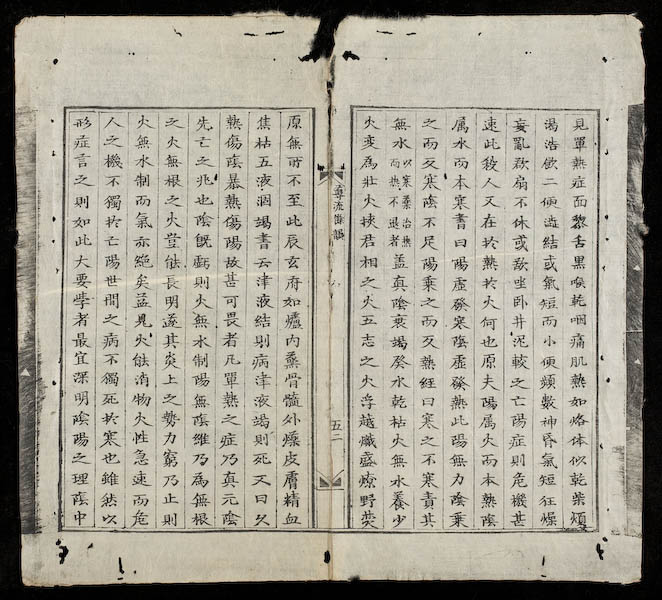 見單熱症面黎舌黑喉乾咽痛肌熱如烙体似乾柴煩
渴浩飲二便澁結或氣短而小便頻數神昏氣短狂燥
妄亂欲扇不休或欲坐卧井泥較之亡陽症則危機甚
速此殺人又在於熱於火何也原夫陽属火而本熱陰
属水而本寒書曰陽虛發寒陰虛發熱此陽無力陰乗
之而反寒陰不足陽乗之而反熱經曰寒之不寒責其
無水以寒藥治熱而熱不退者盖真陰衰竭癸水乾枯火無水養少
火変為壯火挾君相之火五志之火浮越熾盛燎野焚
導流餘韻 五二
原無所不至此辰玄府如爐内蒸骨髓外爍皮膚精血
焦枯五液涸竭書云津液結則病津液竭則死又曰久
熱傷陰暴熱傷陽故甚可畏者凡單熱之症乃真元陰
先亡之兆也陰旣虧則火無水制陽無陰維乃為無根
之火無根之火豈能長明遂其炎上之勢力窮乃止則
火無水制而氣亦絶矣益見火能消物火性急速而危
人之機不獨於亡陽世間之病不獨死於寒也雖然以
形症言之則如此大要學者最宜深明陰陽之理陰中